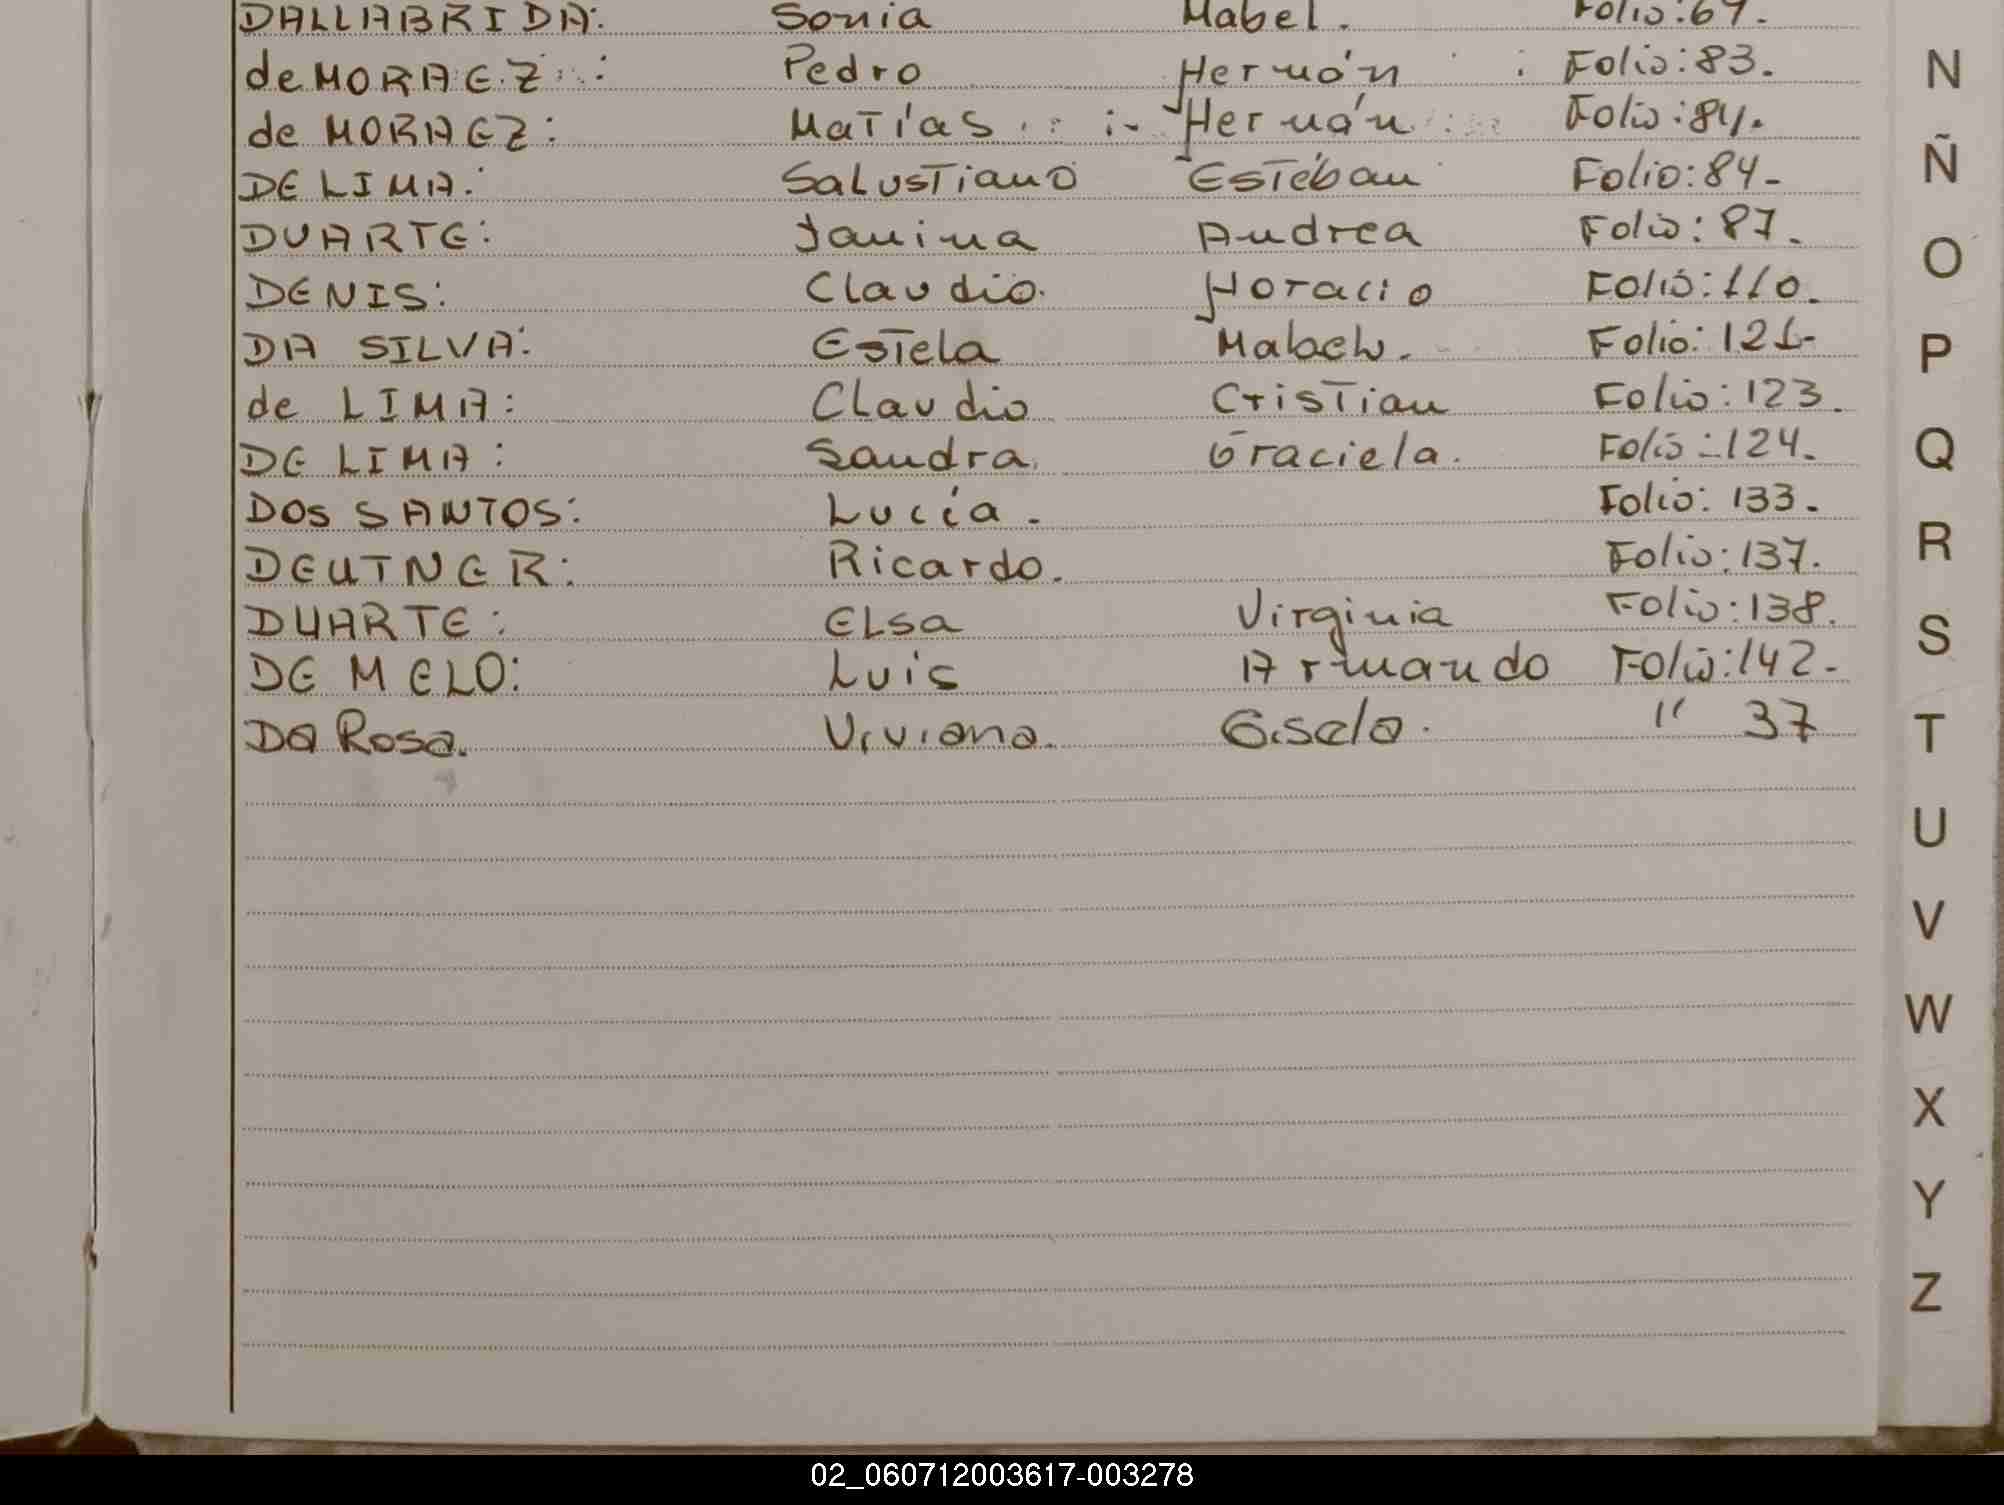 DALLABRIDA: Sonia Mabel. Folio:67.
de MORAEZ : Pedro Hernán : Folio:83.
de MORAEZ: Matías :- Hernán Folio:84.
DE LIMA: Salustiano Estéban Folio:84-
DUARTE: Janina Andrea Folio: 87.
DENIS: Claudio. Horacio Folio:110.
DA SILVA: Estela Mabel. Folio: 121-
de LIMA: Claudio Cristian Folio:123.
DE LIMA: Sandra Graciela. Folio:124.
DOS SANTOS: Lucía. Folio: 133.
DEUTNER: Ricardo. Folio:137.
DUARTE: Elsa Virginia Folio:138.
DE MELO: Luis Armando Folio:142-
Da Rosa. Viviana. Gisela. " 37
N
Ñ
O
P
Q
R
S
T
U
V
W
X
Y
Z
02_060712003617-003278